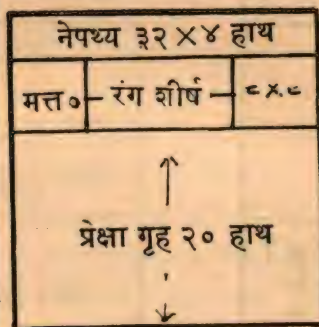 नेपथ्य ३२×४ हाथ
मत्त० रंग शीर्ष ८×८
प्रेक्षा गृह २० हाथ